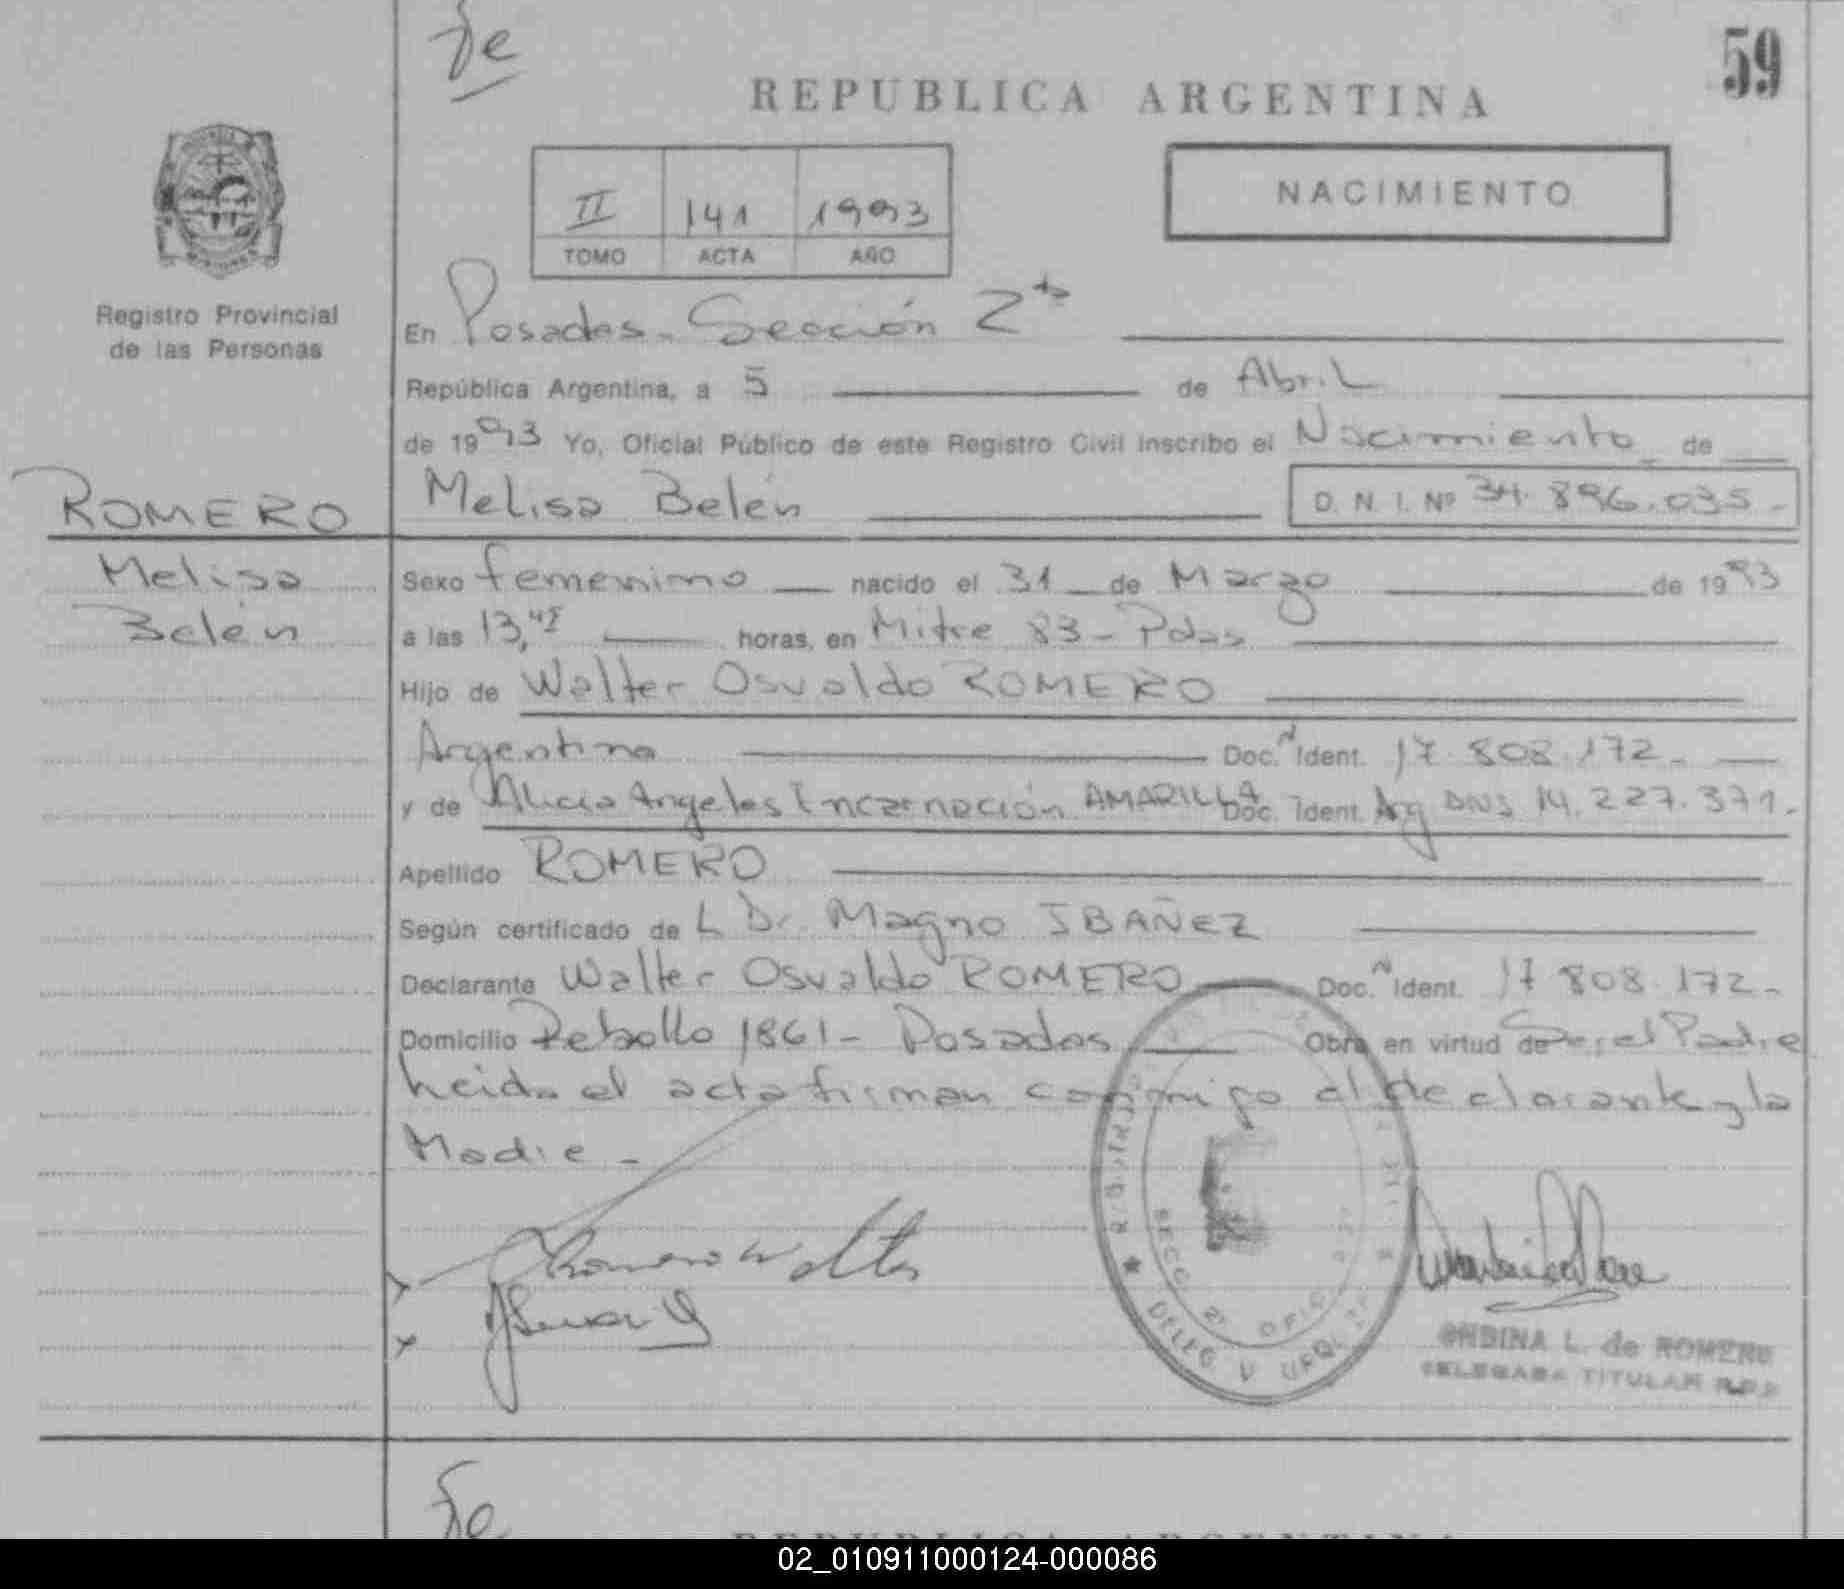 fe
59
REPUBLICA ARGENTINA
NACIMIENTO
II 141 1993
TOMO ACTA AÑO
Registro Provincial
de las Personas
En Posadas - Sección 2ª
República Argentina, a 5 de Abril
de 1993 Yo, Oficial Público de este Registro Civil inscribo el Nacimiento de
ROMERO
Melisa
Belén
Melisa Belén D. N. I. Nº 34.896.035.-
Sexo femenino nacido el 31 de Marzo de 1993
a las 13,45 horas, en Mitre 83 - Pdas
Hijo de Walter Osvaldo ROMERO
Argentina Doc. N Ident. 17.808.172.-
y de Alicia Angeles Encarnación AMARILLA Doc. Ident. Arg DNI 14.227.371.-
Apellido ROMERO
Según certificado de L Dr. Magno IBAÑEZ
Declarante Walter Osvaldo ROMERO Doc. N Ident. 17 808.172.-
Domicilio Rebollo 1861 - Posadas Obra en virtud de Ser el Padre
Leida el acta firman conmigo el declarante y la
Madre -
Romero Walter
DELEG V URQ.
SECC 2ª OFIC
ONDINA L. de ROMERO
DELEGADA TITULAR R.P.P
fe
REPUBLICA ARGENTINA
02_010911000124-000086